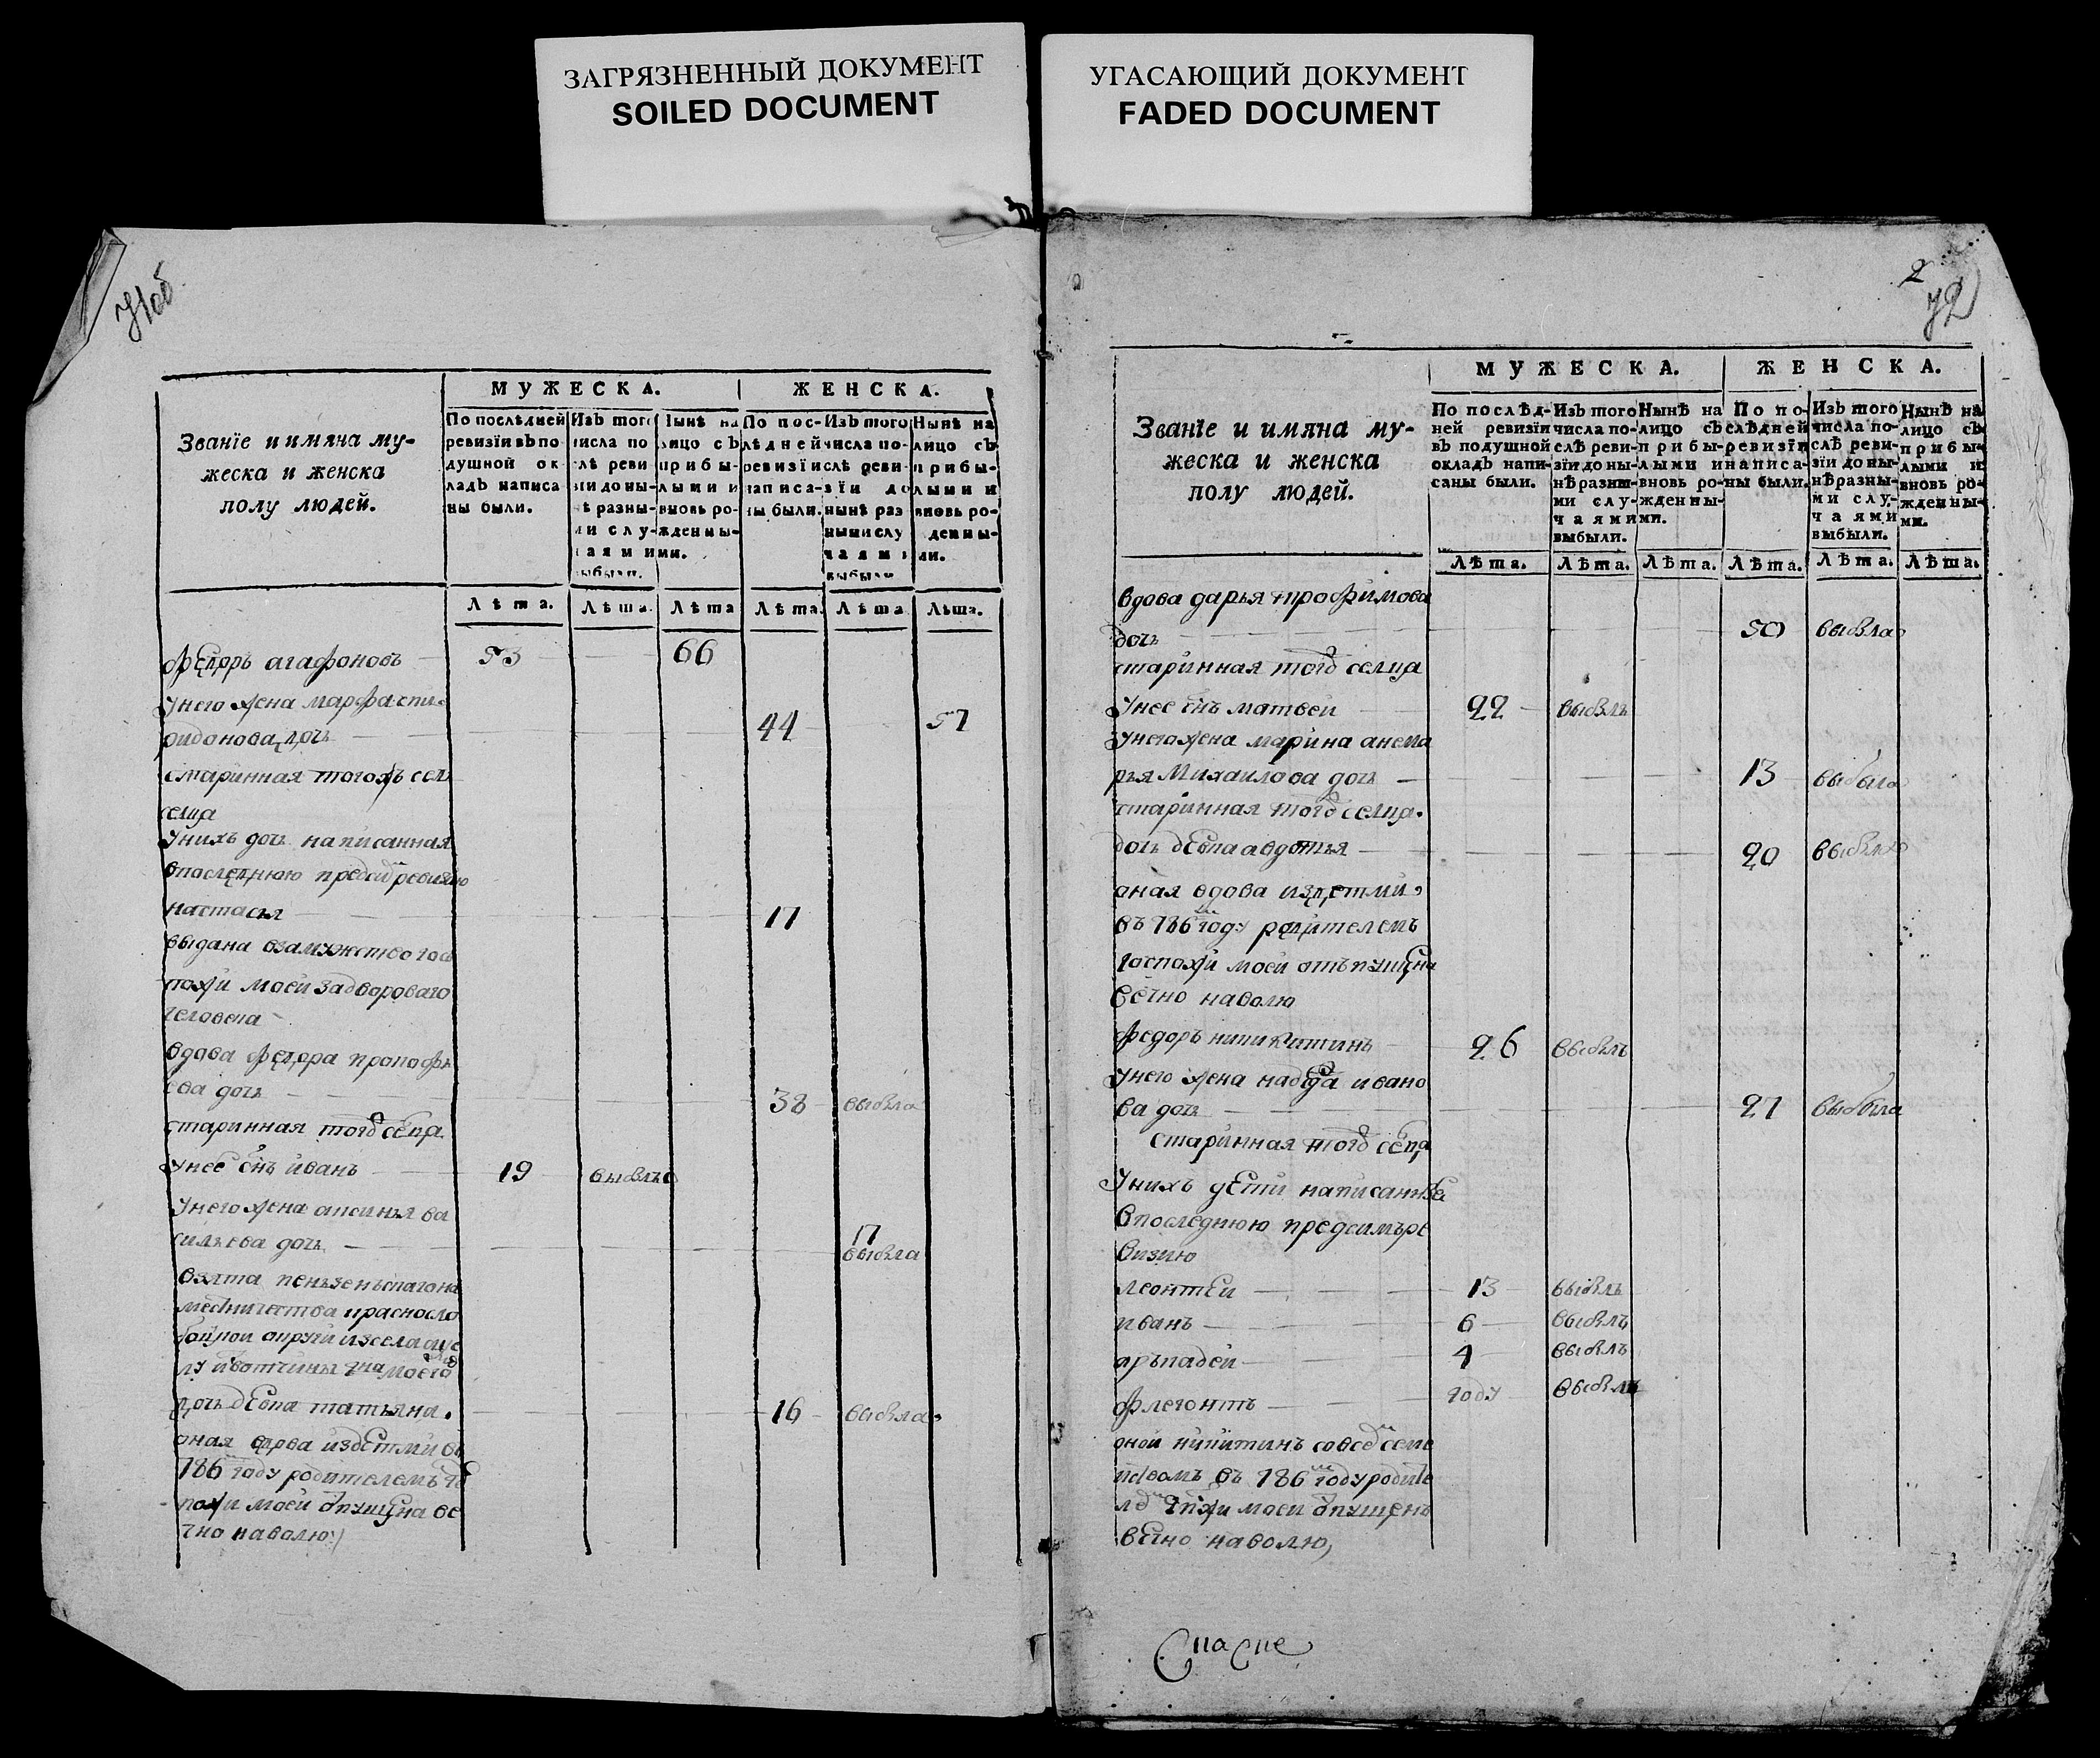 ЗАГРЯЗНЕННЫЙ ДОКУМЕНТ
SOILED DOCUMENT
УГАСАЮЩИЙ ДОКУМЕНТ
FADED DOCUMENT
71об
МУЖЕСКА. ЖЕНСКА.
Званїе и имяна му-
жеска и женска
полу людей.
По послѣдней
ревизїи въ по
душной ок
ладъ написа
ны были.
Изъ того
числа по
слѣ реви
зїи до ны-
нѣ разны-
ми слу-
чаями
выбыли.
Нынѣ на
лицо съ
прибы-
лыми и
вновь ро-
жденны-
ми.
По пос-
лѣдней
ревизїи
написа-
ны были.
Изъ того
числа по-
слѣ реви-
зїи до
нынѣ раз
ными слу
чаями
выбыли
Нынѣ на
лицо съ
прибы-
лыми и
вновь ро-
денны-
ми.
Лѣта. Лѣта. Лѣта Лѣта. Лѣта Лѣта.
федоръ агафоновъ 53 66
Унего жена марфа спи
ридонова дочь 44 57
старинная тогожъ сел
селца
Унихъ дочь написанная
впоследнюю предсию ревизию
настасья 17
выдана взамужство гос
пожи моей задворового
человека
вдова федора прокофь
ева дочь 38 выбыла
старинная того селца
унее снъ иванъ 19 выбылъ
Унего жена аксинья ва
сильева дочь 17
выбыла
взята пензенскаго на
местничества красносло
бодцкой округи изсела
дочь девка татьяна. 16 выбыла
оная вдова издетми въ
786м году родителемъ гос
пожи моей отпущена ве
чно наволю
2
72
МУЖЕСКА. ЖЕНСКА.
Званїе и имяна му-
жеска и женска
полу людей.
По послѣд-
ней ревизїи
въ подушной
окладъ напи-
саны были.
Изъ того
числа по-
слѣ реви-
зїи до ны-
нѣ разны-
ми слу-
чаями
выбыли.
Нынѣ на
лицо съ
прибы-
лыми и
вновь ро-
жденны-
ми.
По по-
слѣдней
ревизїи
написа-
ны были.
Изъ того
числа по-
слѣ реви-
зїи до ны-
нѣ разны-
ми слу-
чаями
выбыли.
Нынѣ на
лицо съ
прибы-
лыми и
вновь ро-
жденны-
ми.
Лѣта. Лѣта. Лѣта. Лѣта. Лѣта. Лѣта.
вдова дарья трофимова
дочь 50 выбыла
старинная того селца
Унее снъ матвей 22 выбылъ
Унего жена марина
Михаилова дочь 13 выбыла
старинная того селца.
дочь девка авдотья 20 выбыла
оная вдова издетми
въ 786м году родителемъ
госпожи моей отъпущена
вечно наволю
федоръ никитинъ 26 выбылъ
Унего жена надежда ивано
ва дочь 27 выбыла
старинная того селца
Унихъ дети написанныя
впоследнюю предсимъ ре
визию
леонтей 13 выбылъ
иванъ 6 выбылъ
аръкадей 4 выбылъ
флегонтъ году выбылъ
оной никитинъ совсемъ семе
йствомъ въ 786м году родите
лемъ гспжи моей отпущенъ
вечно наволю,